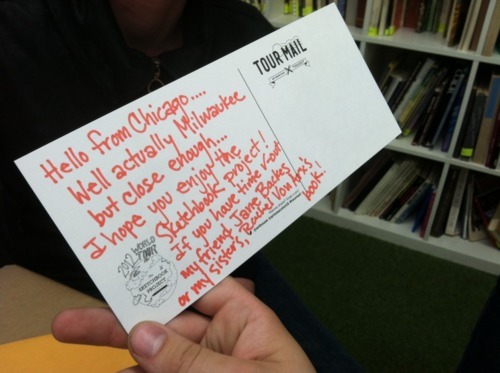 TOUR·MAIL
Hello from Chicago....
Well actually Milwaukee
but close enough...
I hope you enjoy the
Sketchbook Project!
If you have time V-out
my friend, Jane Backes
or my sisters, Becka Vonfox's
book!
2012 WORLD
TOUR
SKETCHBOOK
PROJECT